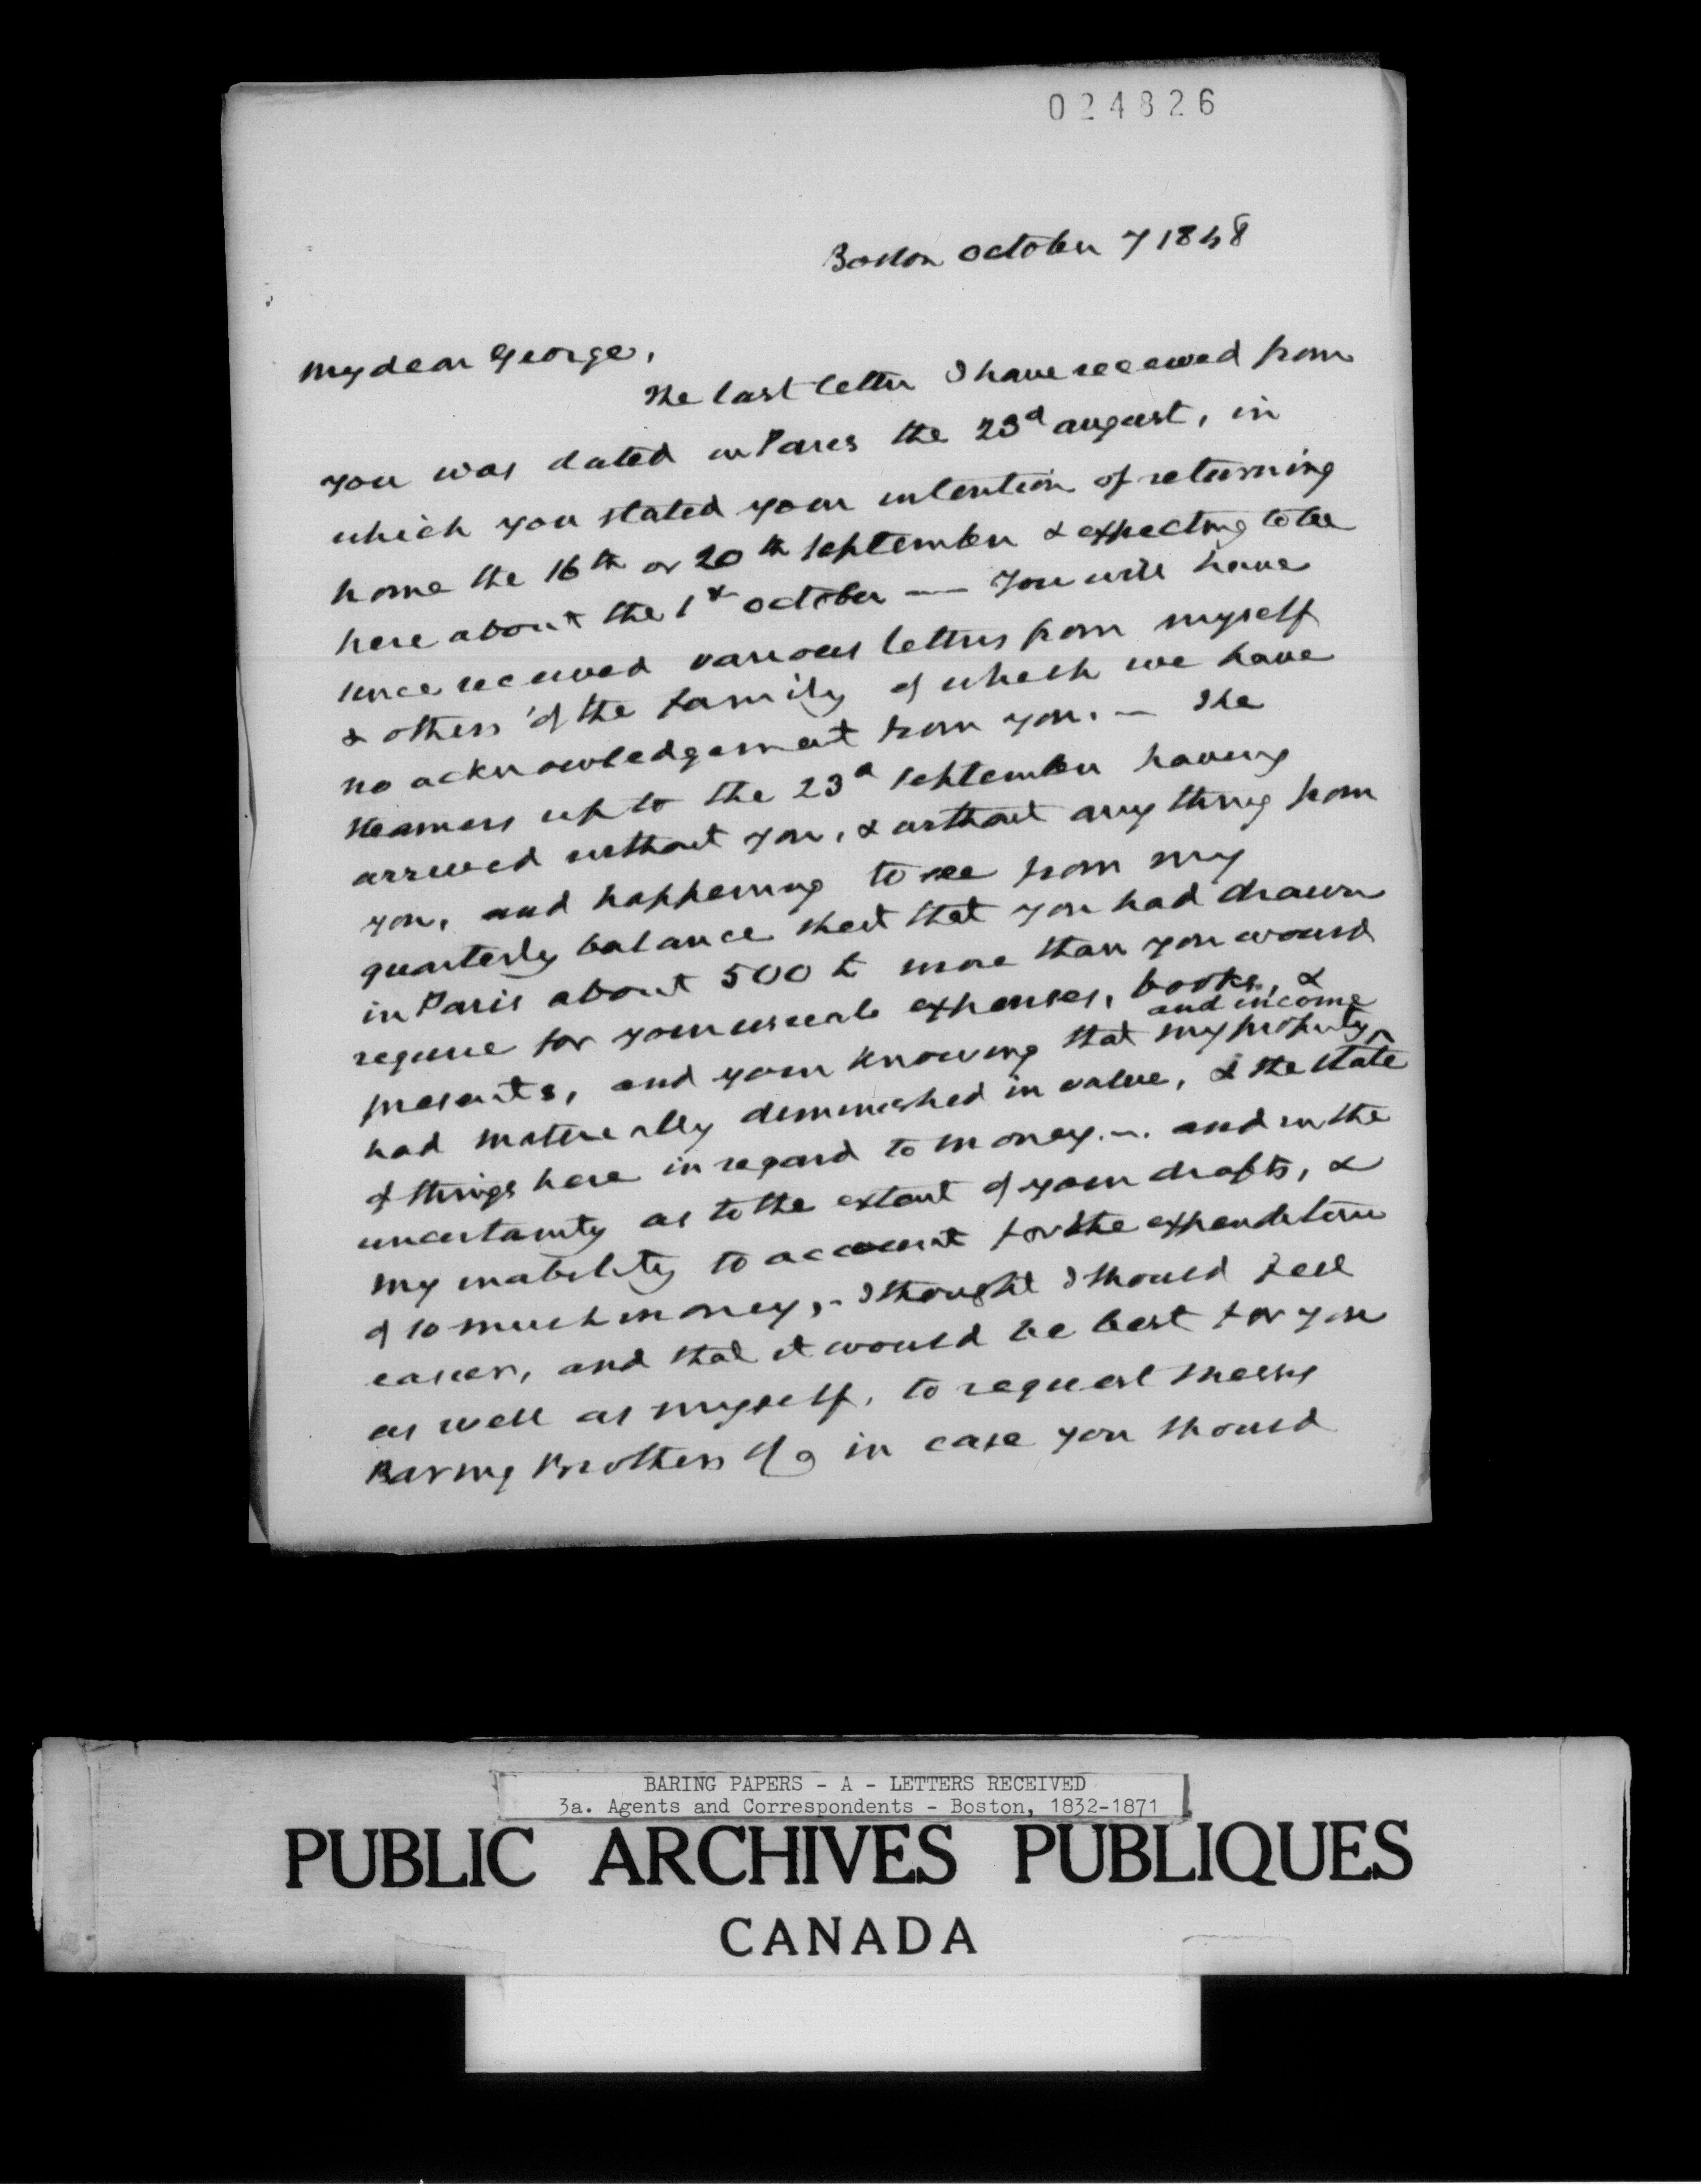 024826
Boston October 7 1848
My dear George,
The last letter I have received from
you was dated in Paris the 23d august, in
which you stated your intention of returning
home the 16th or 20th September & expecting to be
here about the 1st october — You will have
since received various letters from myself
& others of the family of which we have
no acknowledgement from you. — The
steamers up to the 23d September having
arrived without you, & without any thing from
you, and happening to see from my
quarterly balance sheet that you had drawn
in Paris about 500 £ more than you would
require for your usual expenses, books, &
presents, and your knowing that my property and income
had materially diminished in value, & the state
of things here in regard to money. — and in the
uncertainty as to the extent of your drafts, &
my inability to account for the expenditure
of so much money, - I thought I should feel
easier, and that it would be best for you
as well as myself, to request Messrs
Baring Brothers & Co in case you should
BARING PAPERS - A - LETTERS RECEIVED
3a. Agents and Correspondents - Boston, 1832-1871
PUBLIC ARCHIVES PUBLIQUES
CANADA